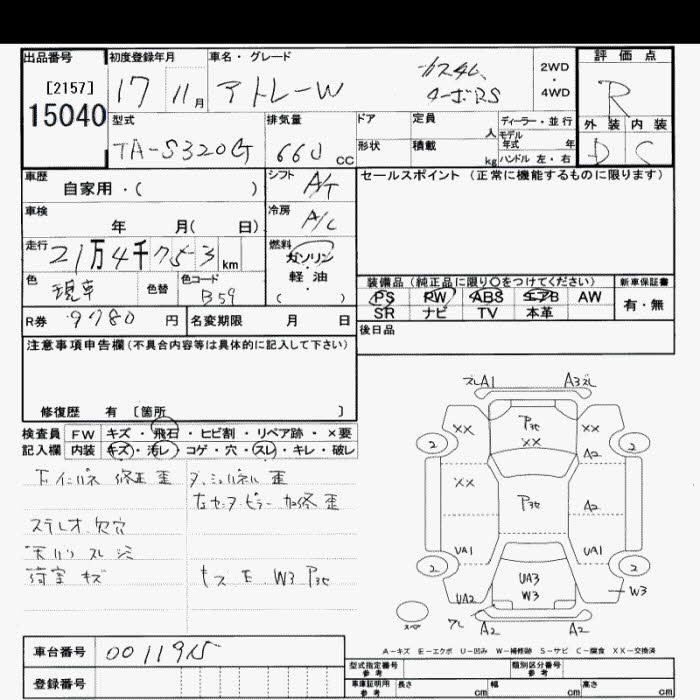 出品番号 初度登録年月 車名・グレード 評価点
[2157] 17 11月 アトレーW カスタム ターボRS 2WD・4WD R
15040
型式 排気量 ドア 定員 人 ディーラー・並行 外装 内装
TA-S320G 660 cc 形状 積載 kg モデル年式 年 ハンドル 左・右 D C
車歴 シフト セールスポイント (正常に機能するものに限ります)
自家用・( ) A/T
車検 冷房
年 月( 日) A/C
走行 燃料
21万4千753km ガソリン・軽油
色 色替 色コード ( ) 装備品 (純正品に限り○をつけてください) 新車保証書
現車 B59 PS PW ABS エアB AW 有・無
R券 9780円 名変期限 月 日 SR ナビ TV 本革
注意事項申告欄(不具合内容等は具体的に記入して下さい) 後日品
修復歴 有 [箇所 ]
検査員 FW キズ・飛石・ヒビ割・リペア跡・×要
記入欄 内装 キズ・汚レ・コゲ・穴・スレ・キレ・破レ
下インパネ 修正 歪 ダッシュパネル 歪
左センターピラー 加修 歪
ステレオ欠穴
天ハリ スレ
荷室 キズ キズ E W3 Pヨヒ
ズレA1 A3ズレ
XX Pヨヒ XX
2 XX A2 2
XX Pヨヒ A2
UA1 UA1
2 UA3 2
UA2 W3 W3
スペア A2 A2
A-キズ E-エクボ U-凹み W-補修跡 S-サビ C-腐食 XX-交換済
車台番号 型式指定番号 参考 類別区分番号 参考
登録番号 車庫証明用 参考 長さ cm 幅 cm 高さ cm